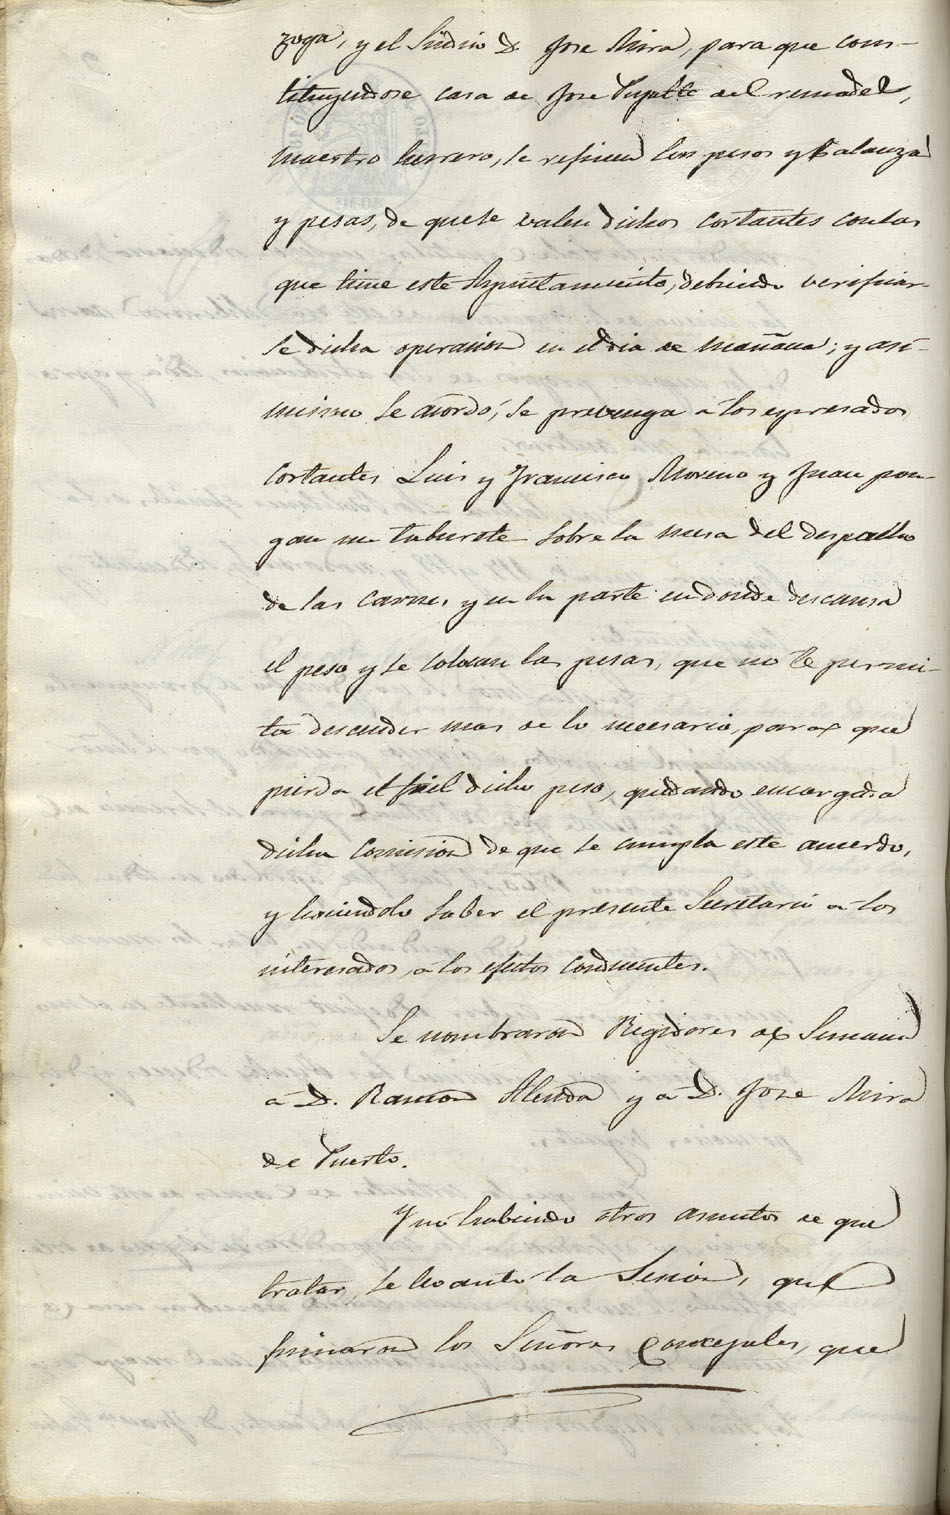 zoga, y el Sindico D. Jose Mira, para que cons-
tituyendose casa de Jose Pujalte del remadel,
maestro herrero, se refinen los pesos y Balanza
y pesas, de que se valen dichos cortantes con las
que tiene este Ayuntamiento, debiendo verificar-
se dicha operacion en el dia de mañana; y asi-
mismo se acordó, se prevenga á los espresados
cortantes Luis y Francisco Moreno y Juan pon-
gan un taburete sobre la mesa del despacho
de las carnes y en la parte en donde descansa
el peso y se colocan las pesas, que no le permi-
ta descender mas de lo necesario, para que
pierda el fiel dicho peso, quedando encargada
dicha Comision de que se cumpla este acuerdo,
y haciendolo saber el presente Secretario á los
interesados, á los efectos conducentes.
Se nombraron Regidores de Semana
á D. Ramon Alenda y á D. Jose Mira
de Puerto.
Y no habiendo otros asuntos de que
tratar, se levantó la Sesion, que
firmaron los Señores Concejales, que